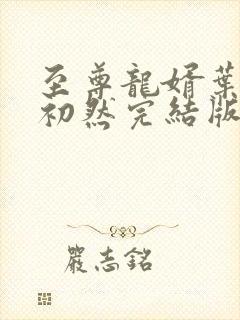 至尊龍婿葉
初然完結版
嚴志銘